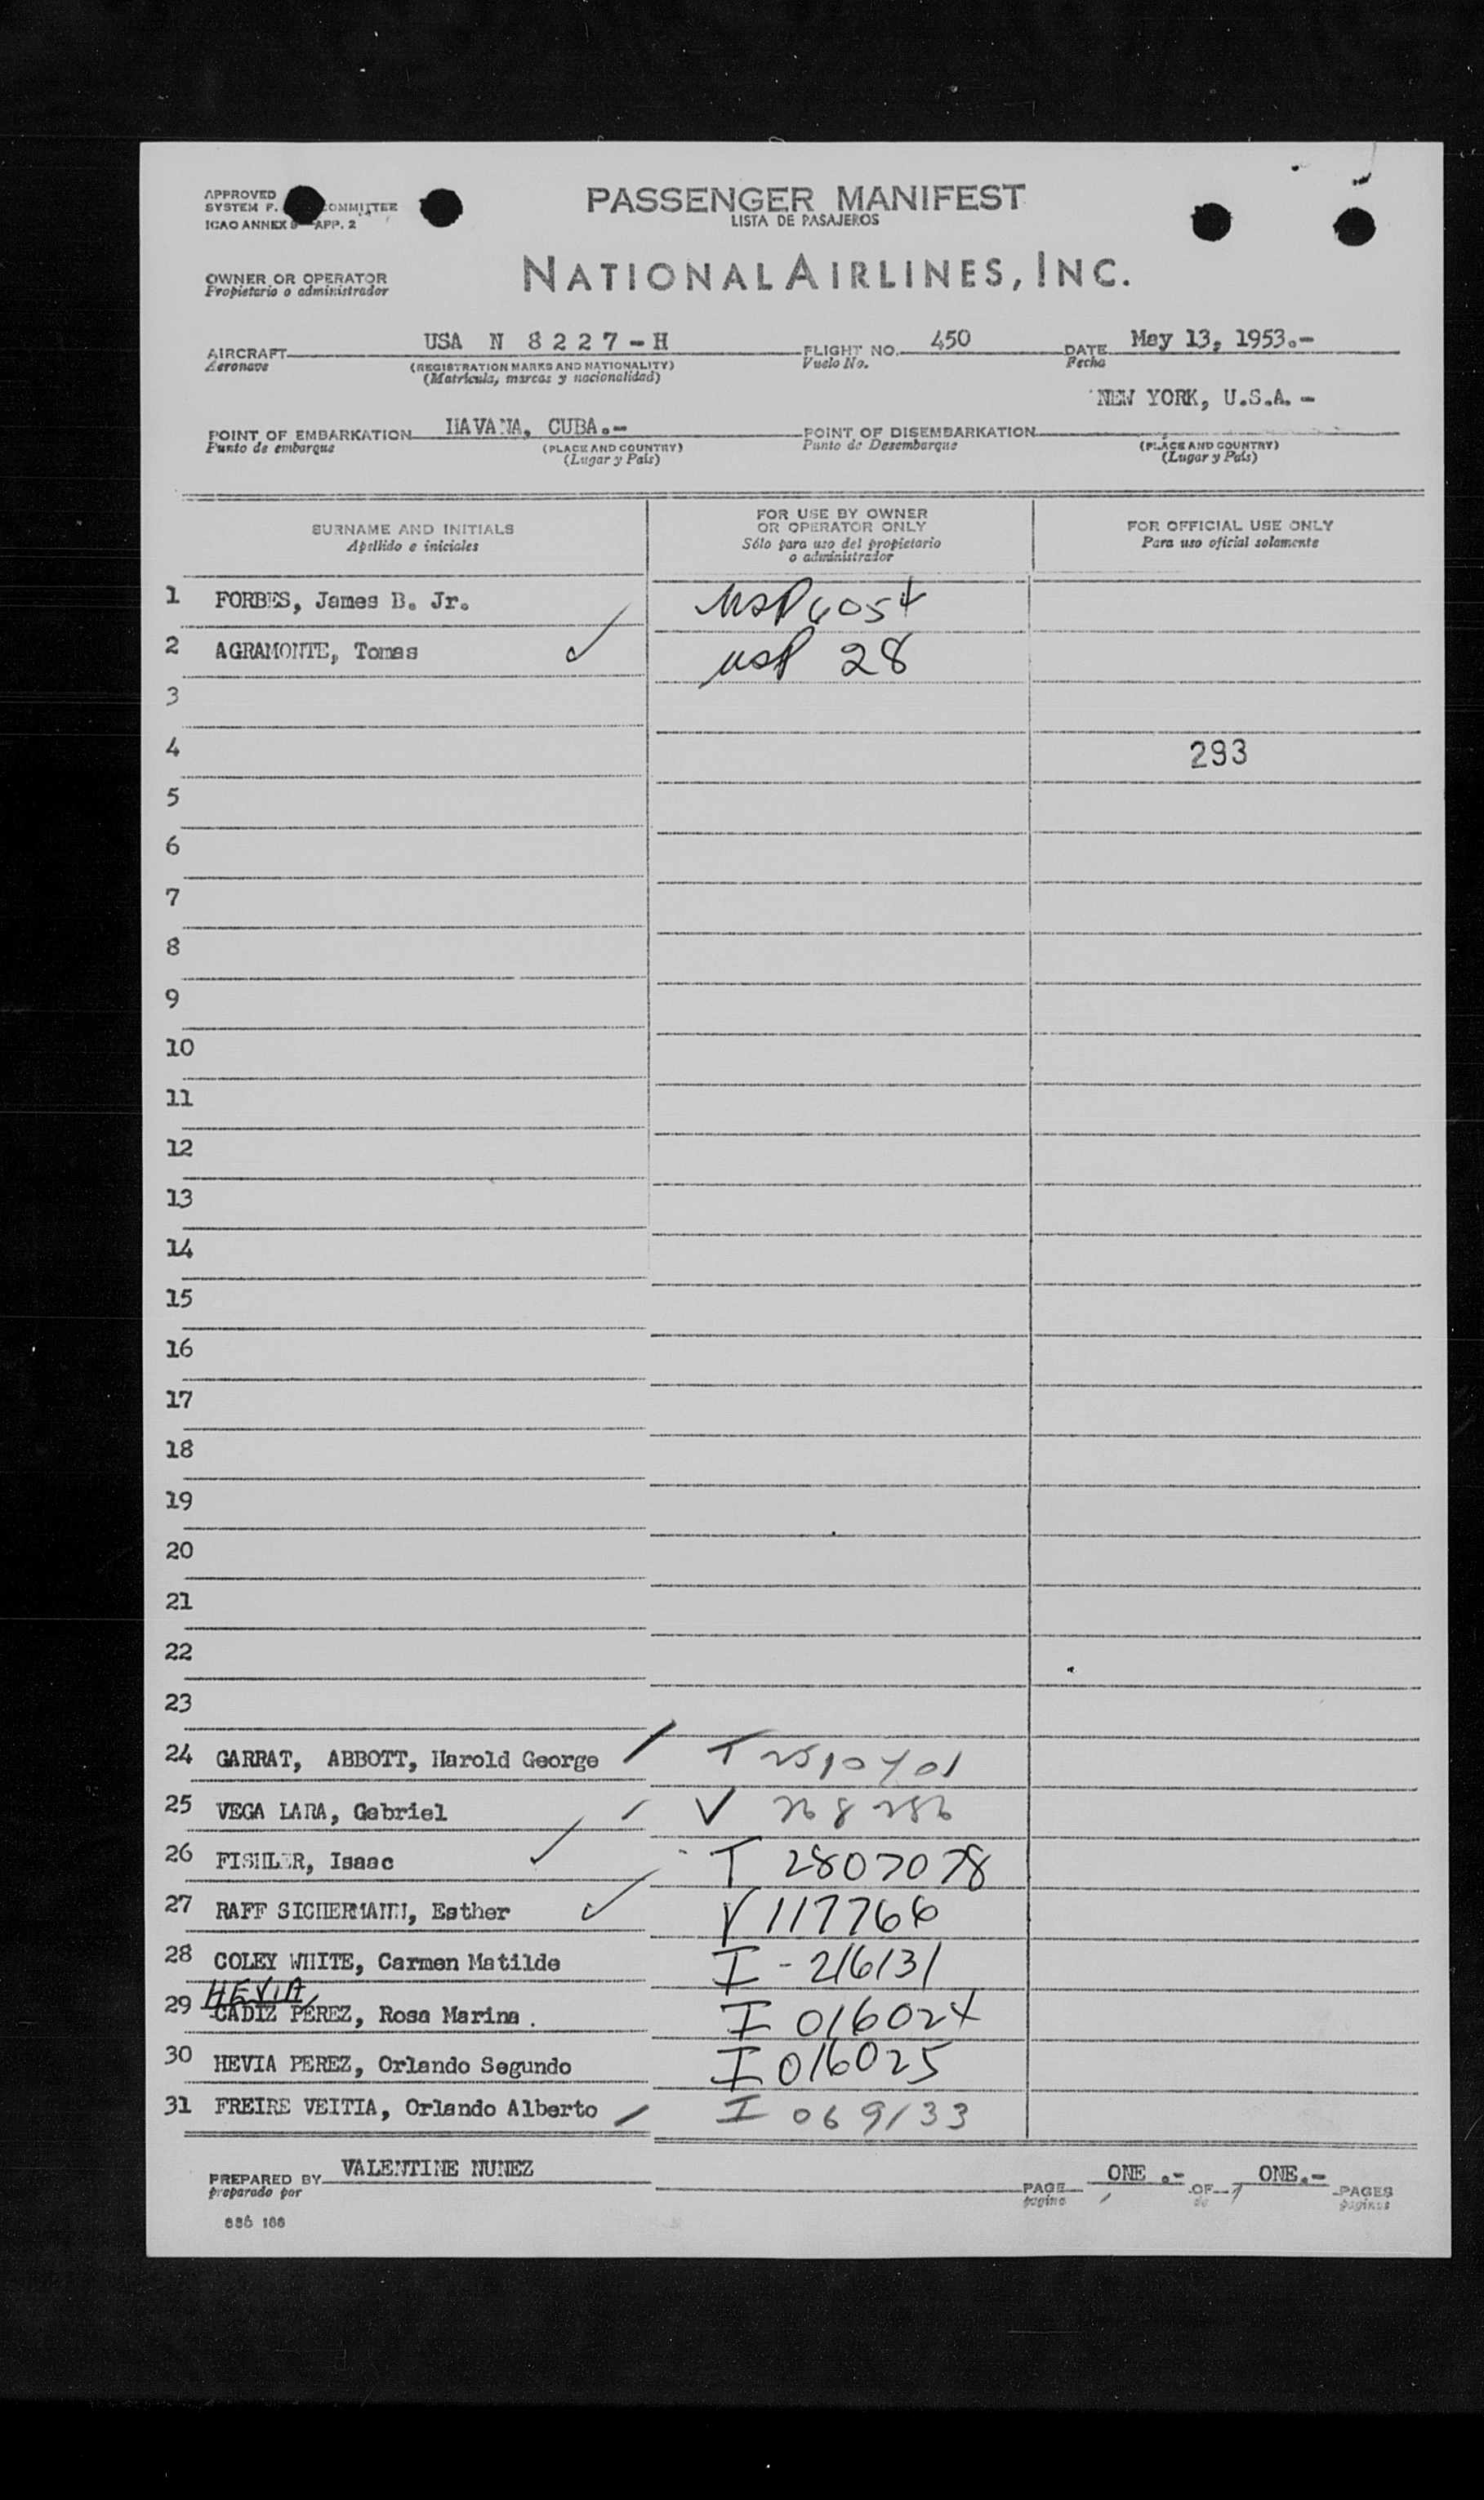 APPROVED
SYSTEM F. COMMITTEE
ICAO ANNEX 9 APP. 2
PASSENGER MANIFEST
LISTA DE PASAJEROS
OWNER OR OPERATOR
Propietario o administrador
NATIONAL AIRLINES, INC.
AIRCRAFT USA N 8227-H FLIGHT NO. 450 DATE May 13, 1953.-
Aeronave (REGISTRATION MARKS AND NATIONALITY) Vuelo No. Fecha
(Matricula, marcas y nacionalidad)
NEW YORK, U.S.A. -
POINT OF EMBARKATION HAVANA, CUBA.- POINT OF DISEMBARKATION
Punto de embarque (PLACE AND COUNTRY) Punto de Desembarque (PLACE AND COUNTRY)
(Lugar y País) (Lugar y País)
SURNAME AND INITIALS
Apellido e iniciales
FOR USE BY OWNER
OR OPERATOR ONLY
Sólo para uso del propietario
o administrador
FOR OFFICIAL USE ONLY
Para uso oficial solamente
1 FORBES, James B. Jr. USP 6054
2 AGRAMONTE, Tomas ✓ USP 28
3
4 293
5
6
7
8
9
10
11
12
13
14
15
16
17
18
19
20
21
22
23
24 GARRAT, ABBOTT, Harold George T
25 VEGA LARA, Gabriel V
26 FISHLER, Isaac ✓ T 2807078
27 RAFF SICHERMANN, Esther ✓ V 117766
28 COLEY WHITE, Carmen Matilde I-216131
HEVIA
29 CADIZ PEREZ, Rosa Marina. I 016024
30 HEVIA PEREZ, Orlando Segundo I 016025
31 FREIRE VEITIA, Orlando Alberto I 069133
PREPARED BY VALENTINE NUNEZ PAGE ONE .- OF ONE.- PAGES
preparado por pagina de paginas